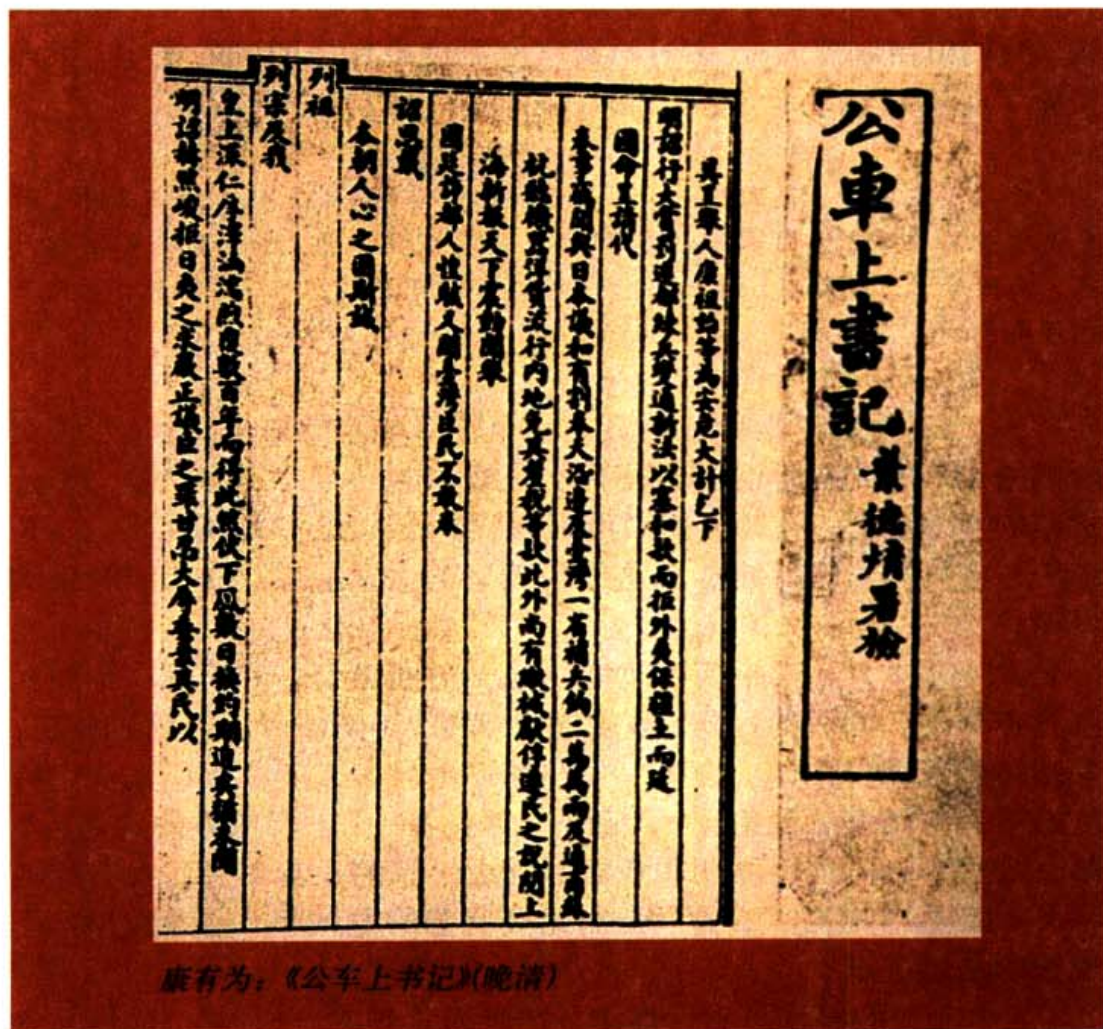 公車上書記 葉 署檢
具呈舉人康祖詒等為安危大計乞下
明詔行大賞罰遷都練兵變通新法以塞和款而拒外夷保疆土而延
國命呈請代
奏事竊聞與日本議和有割奉天沿邊及臺灣一省補兵餉二萬萬兩及通商蘇
杭聽機器洋貨流行內地免其釐稅等款此外尚有繳械獻俘遷民之說閱上
海新報天下震動聞舉
國廷諍都人惶駭又聞臺灣臣民不敢奉
詔思戴
本朝人心之固斯誠
列祖
列宗及我
皇上深仁厚澤涵濡煦覆數百年而得此然伏下風數日換約期迫矣猶未聞
明詔赫然峻拒日夷之求嚴正議臣之罪甘忍大辱委棄其民以
康有为：《公车上书记》(晚清)